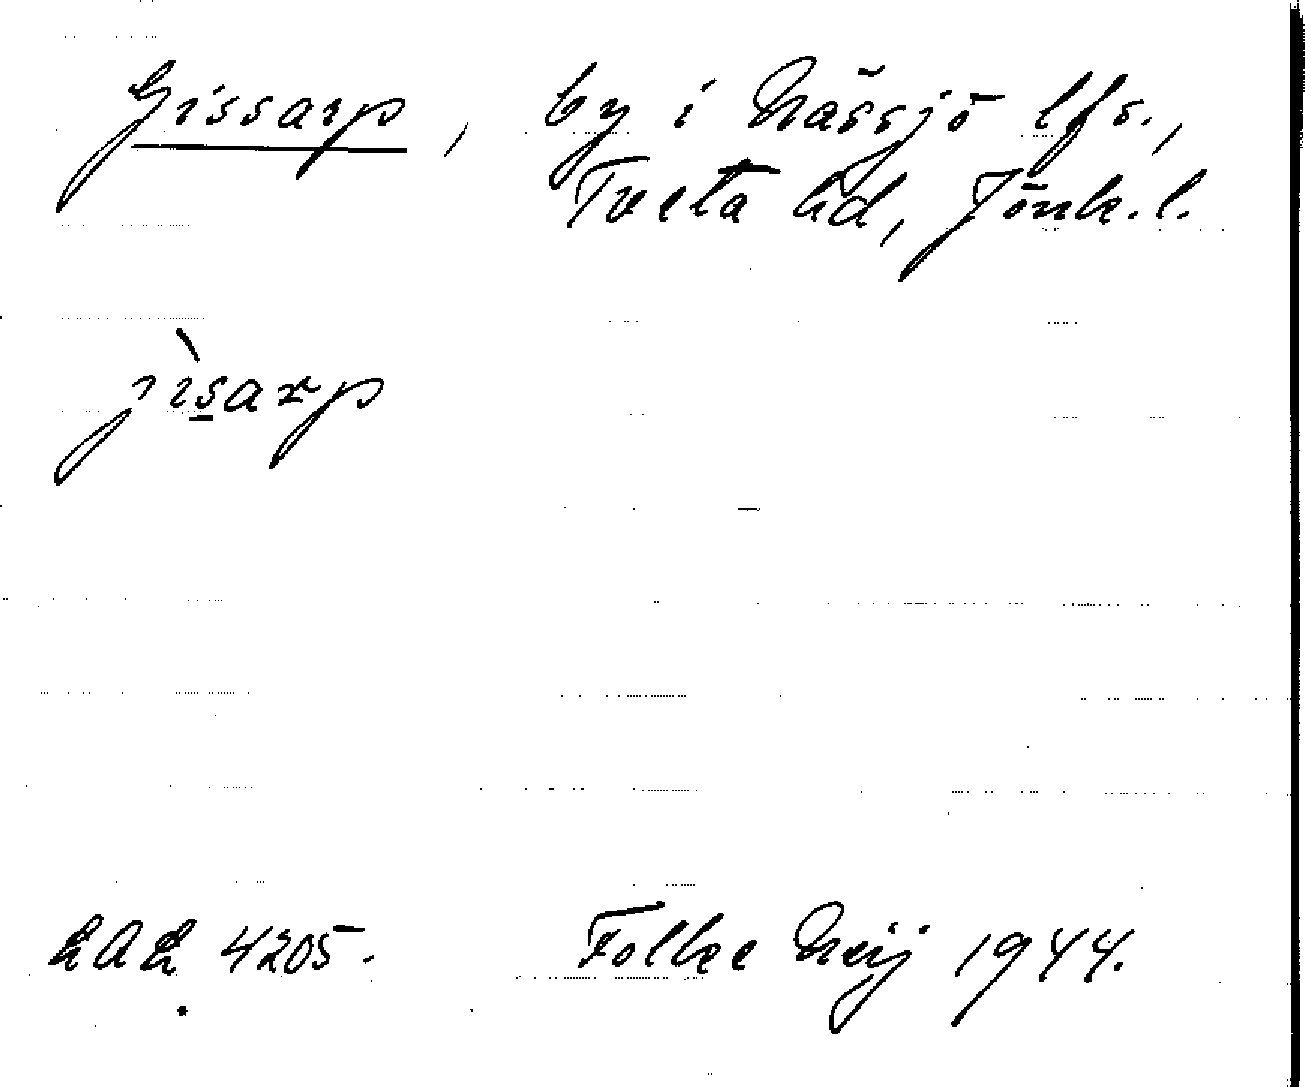 Gissarp, by i Nässjö lfs.,
Tveta hd, Jönk. l.
jìs̲arp
LAL 4205.
Folke Neij 1944.